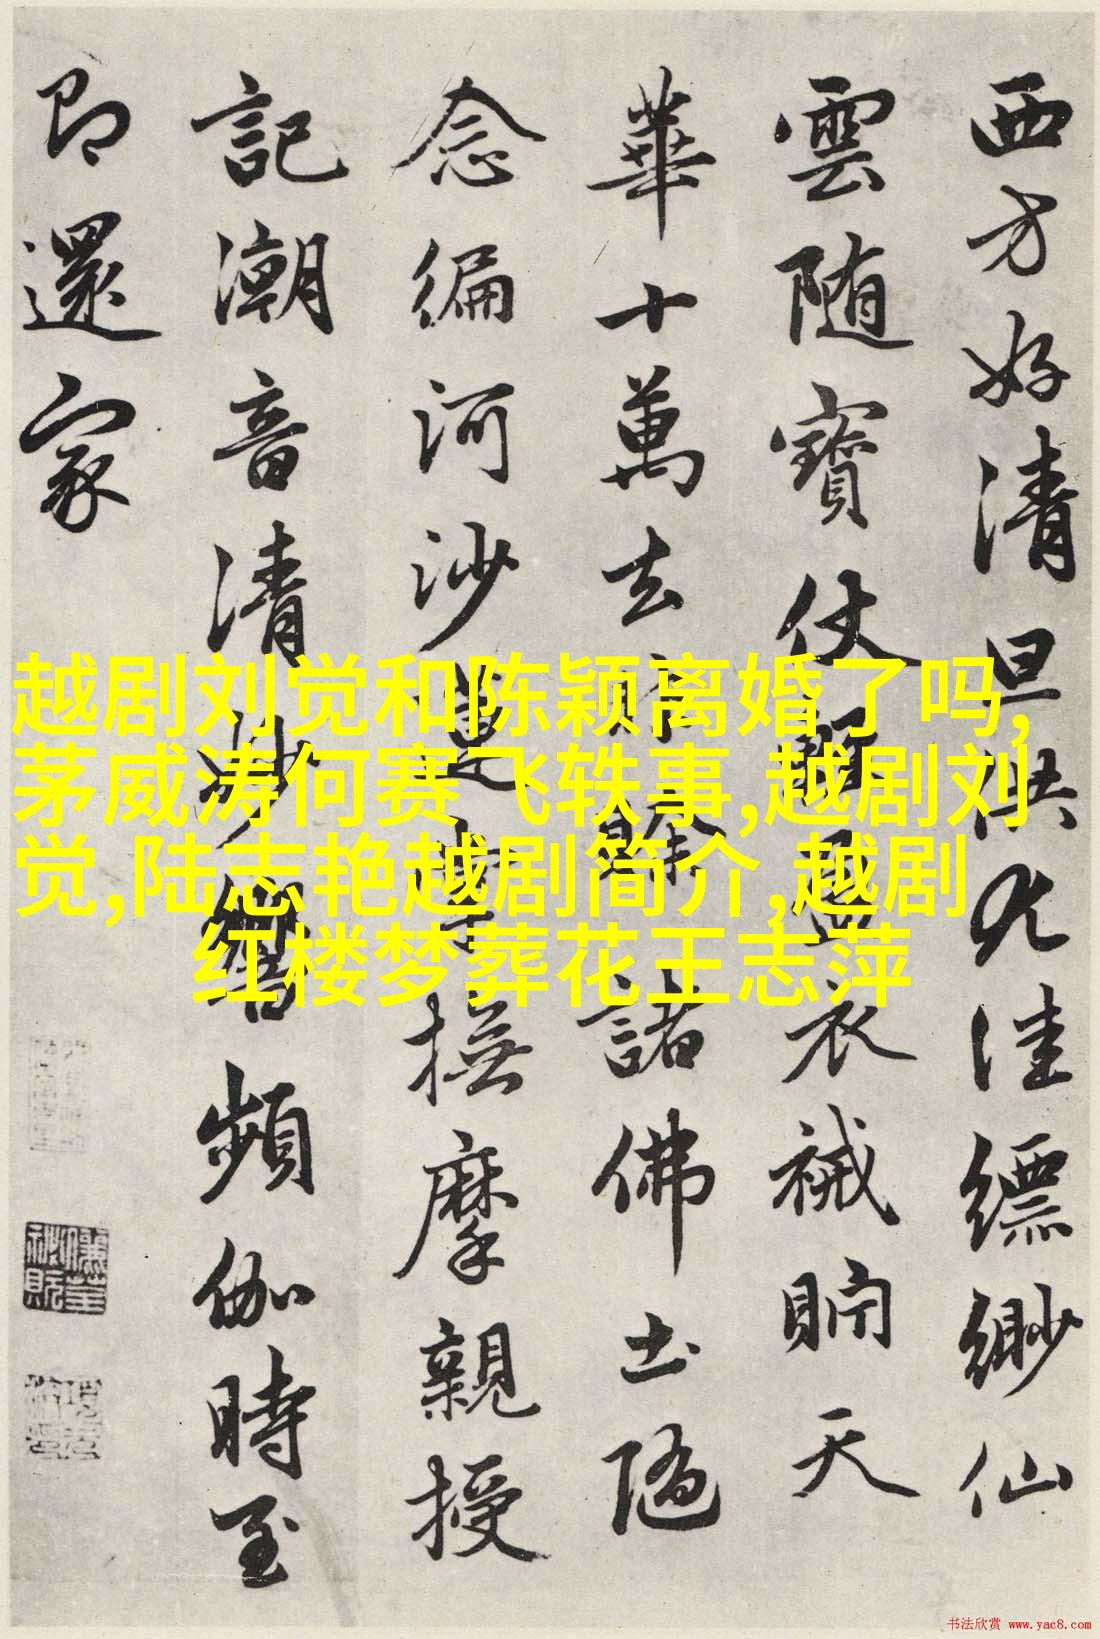 西方好清旦供九洼缥缈仙
雲随寶仗
衣裓貯天
華十萬去
諸佛土隨
念編河沙
撫摩親授
記潮音清妙響頻伽時至
即還家
越剧刘觉和陈颖离婚了吗,
茅威涛何赛飞轶事,越剧刘
觉,陆志艳越剧简介,越剧
红楼梦葬花王志萍
书法欣赏 www.yac8.com